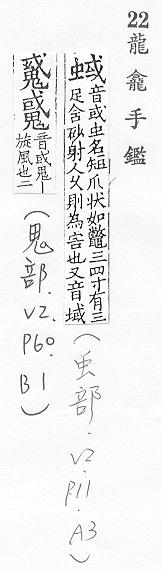 22
龍龕手鑑
蜮 音或虫名短爪状如鼈三四寸有三
足含砂射人久則為害也又音域
(虫部.V2.P11.A3)
音或鬼
旋風也二
(鬼部.V2.P60.B1)